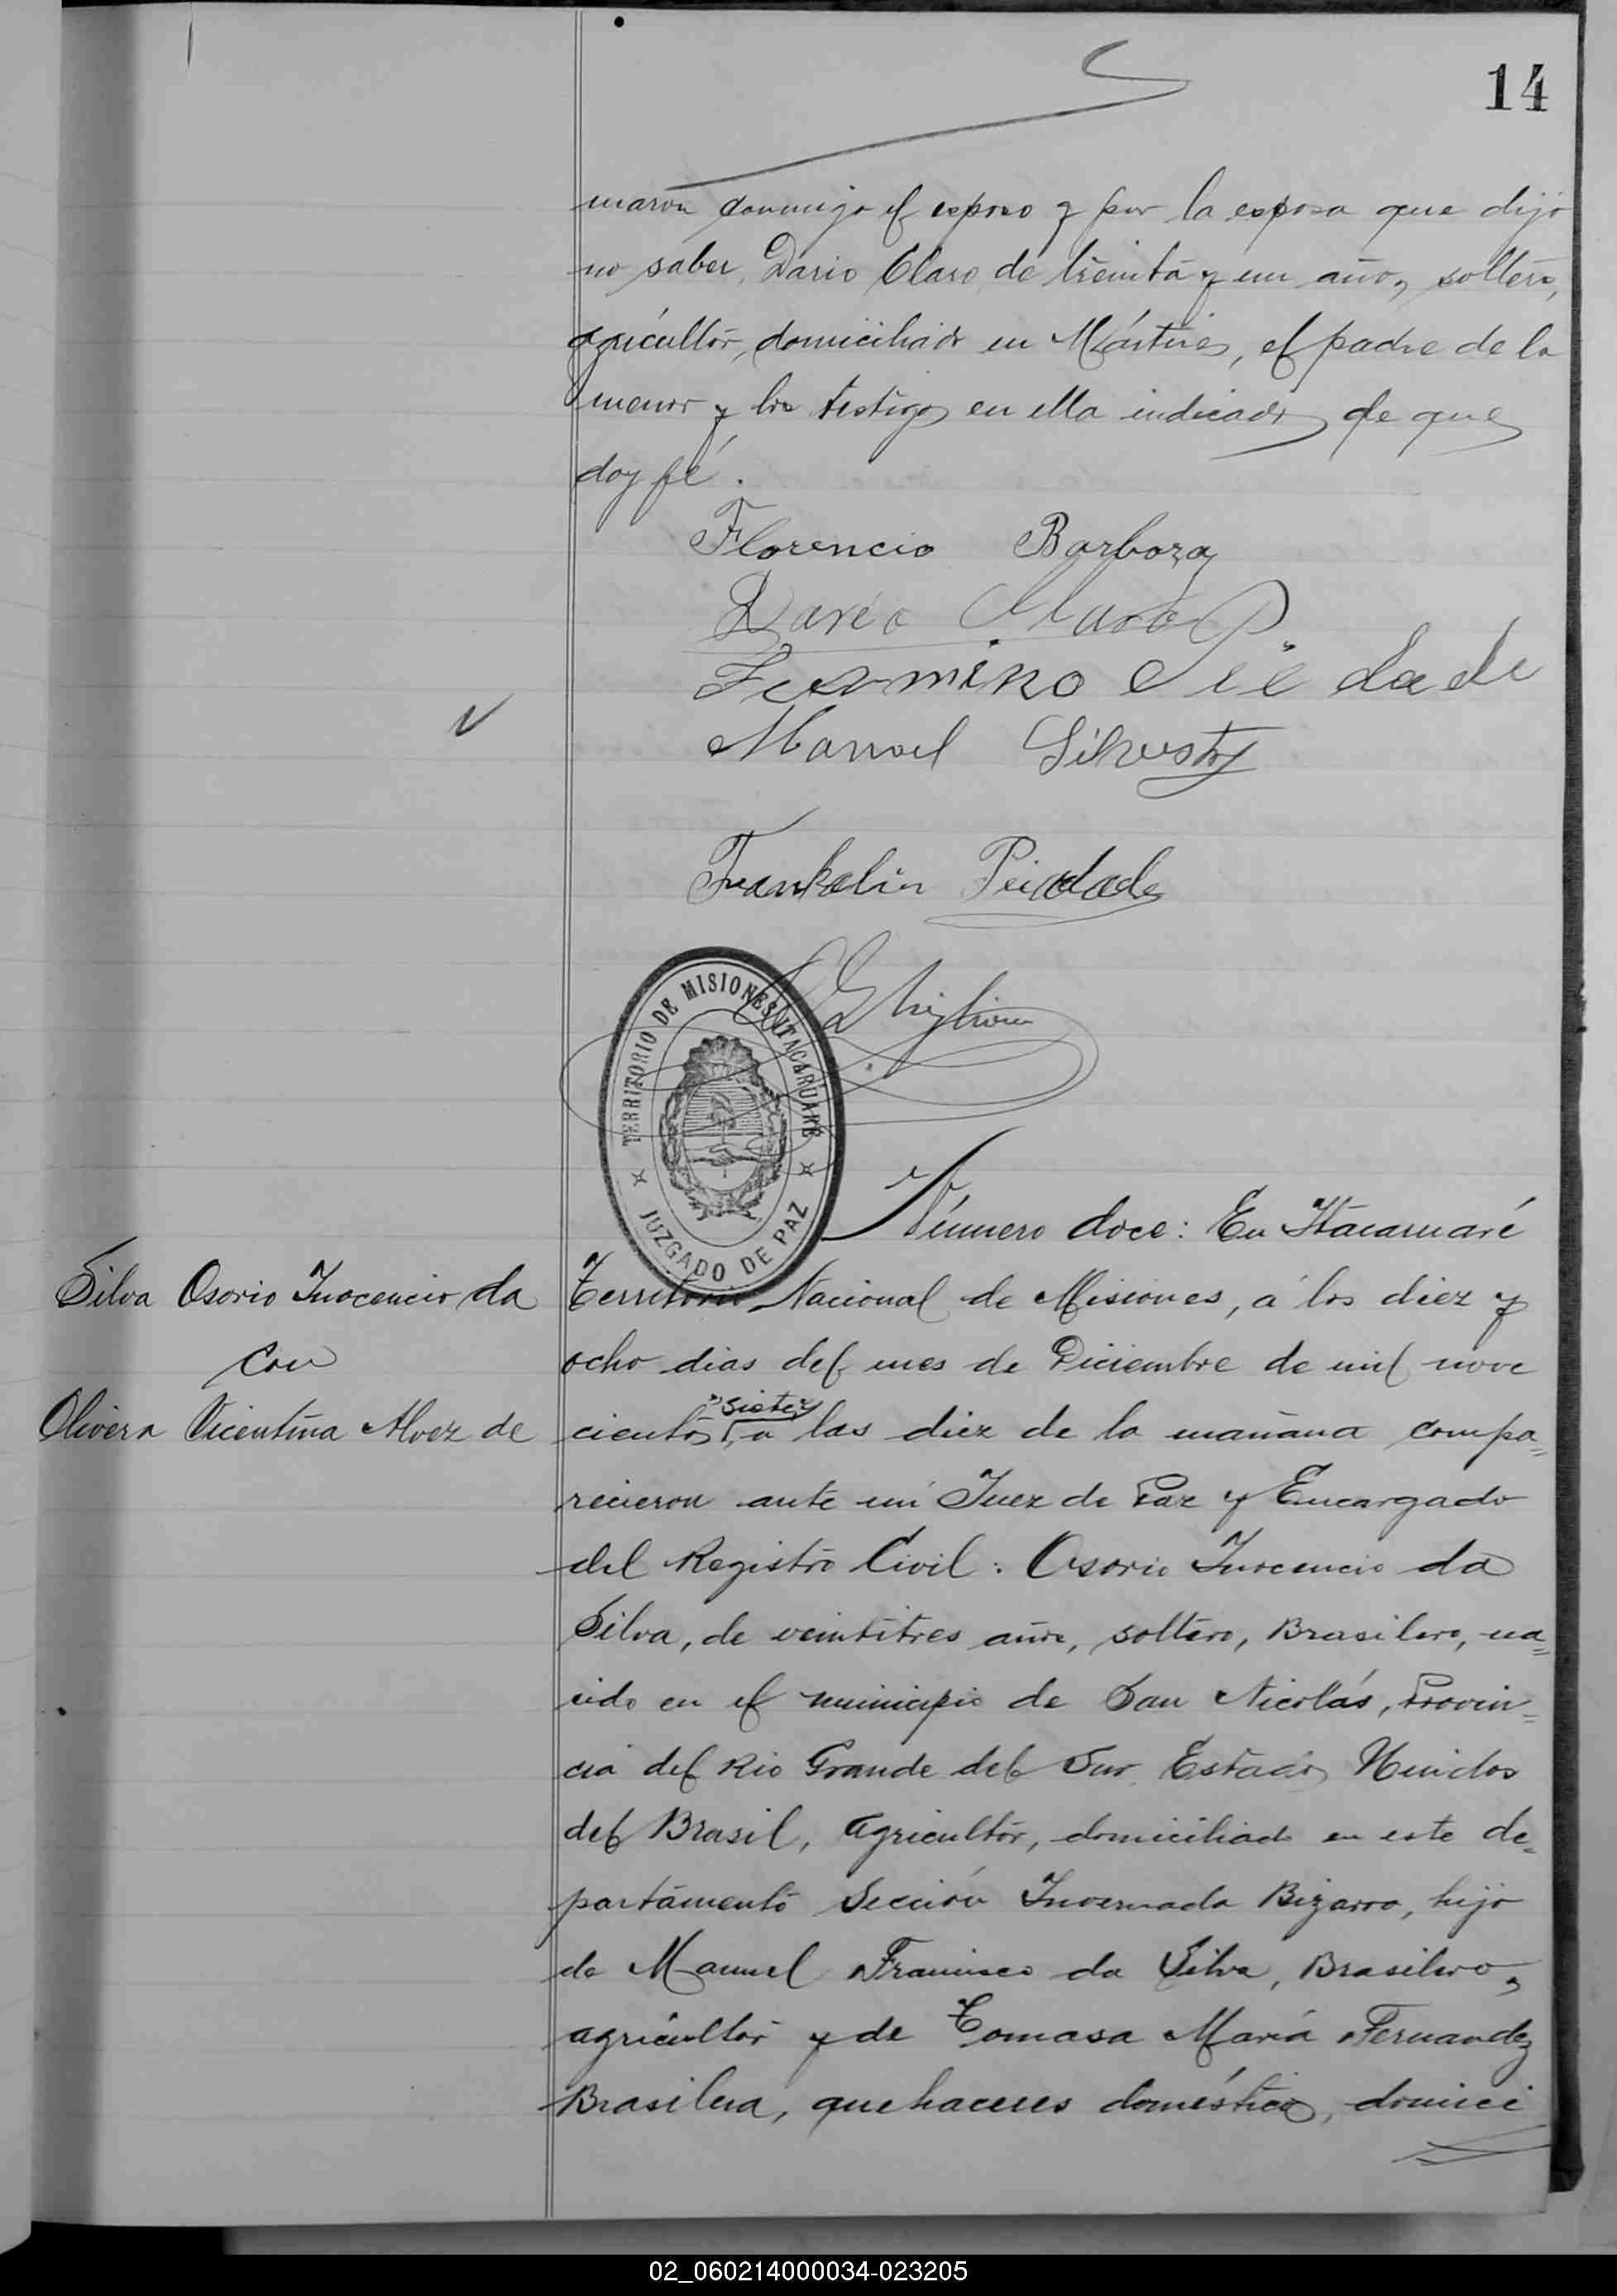 14
maron conmigo el esposo y por la esposa que dijo
no saber, Dario Claro, de treinta y un años, soltero,
agricultor, domiciliado en Mártires, el padre de la
menor y los testigos en ella indicados de que
doy fé.
Florencio Barboza
Dario Claro
Fermino Piedade
Manoel Silvestre
Frankalin Peidade
TERRITORIO DE MISIONES ITACARUARÉ
JUZGADO DE PAZ
Número doce: En Itacaruaré
Silva Osorio Inocencio da
con
Olivera Vicentina Alvez de
Territorio Nacional de Misiones, á los diez y
ocho dias del mes de Diciembre de mil nove
siete
cientos, a las diez de la mañana compa=
recieron ante mi Juez de Paz y Encargado
del Registro Civil: Osorio Inocencio da
Silva, de veintitres años, soltero, Brasilero, na=
cido en el municipio de San Nicolás, Provin=
cia del Rio Grande del Sur Estados Unidos
del Brasil, agricultor, domiciliado en este de=
partamento Sección Invernada Bizarro, hijo
de Manuel Francisco da Silva, Brasilero,
agricultor y de Tomasa María Fernandez
Brasilera, quehaceres domésticos, domici
02_060214000034-023205